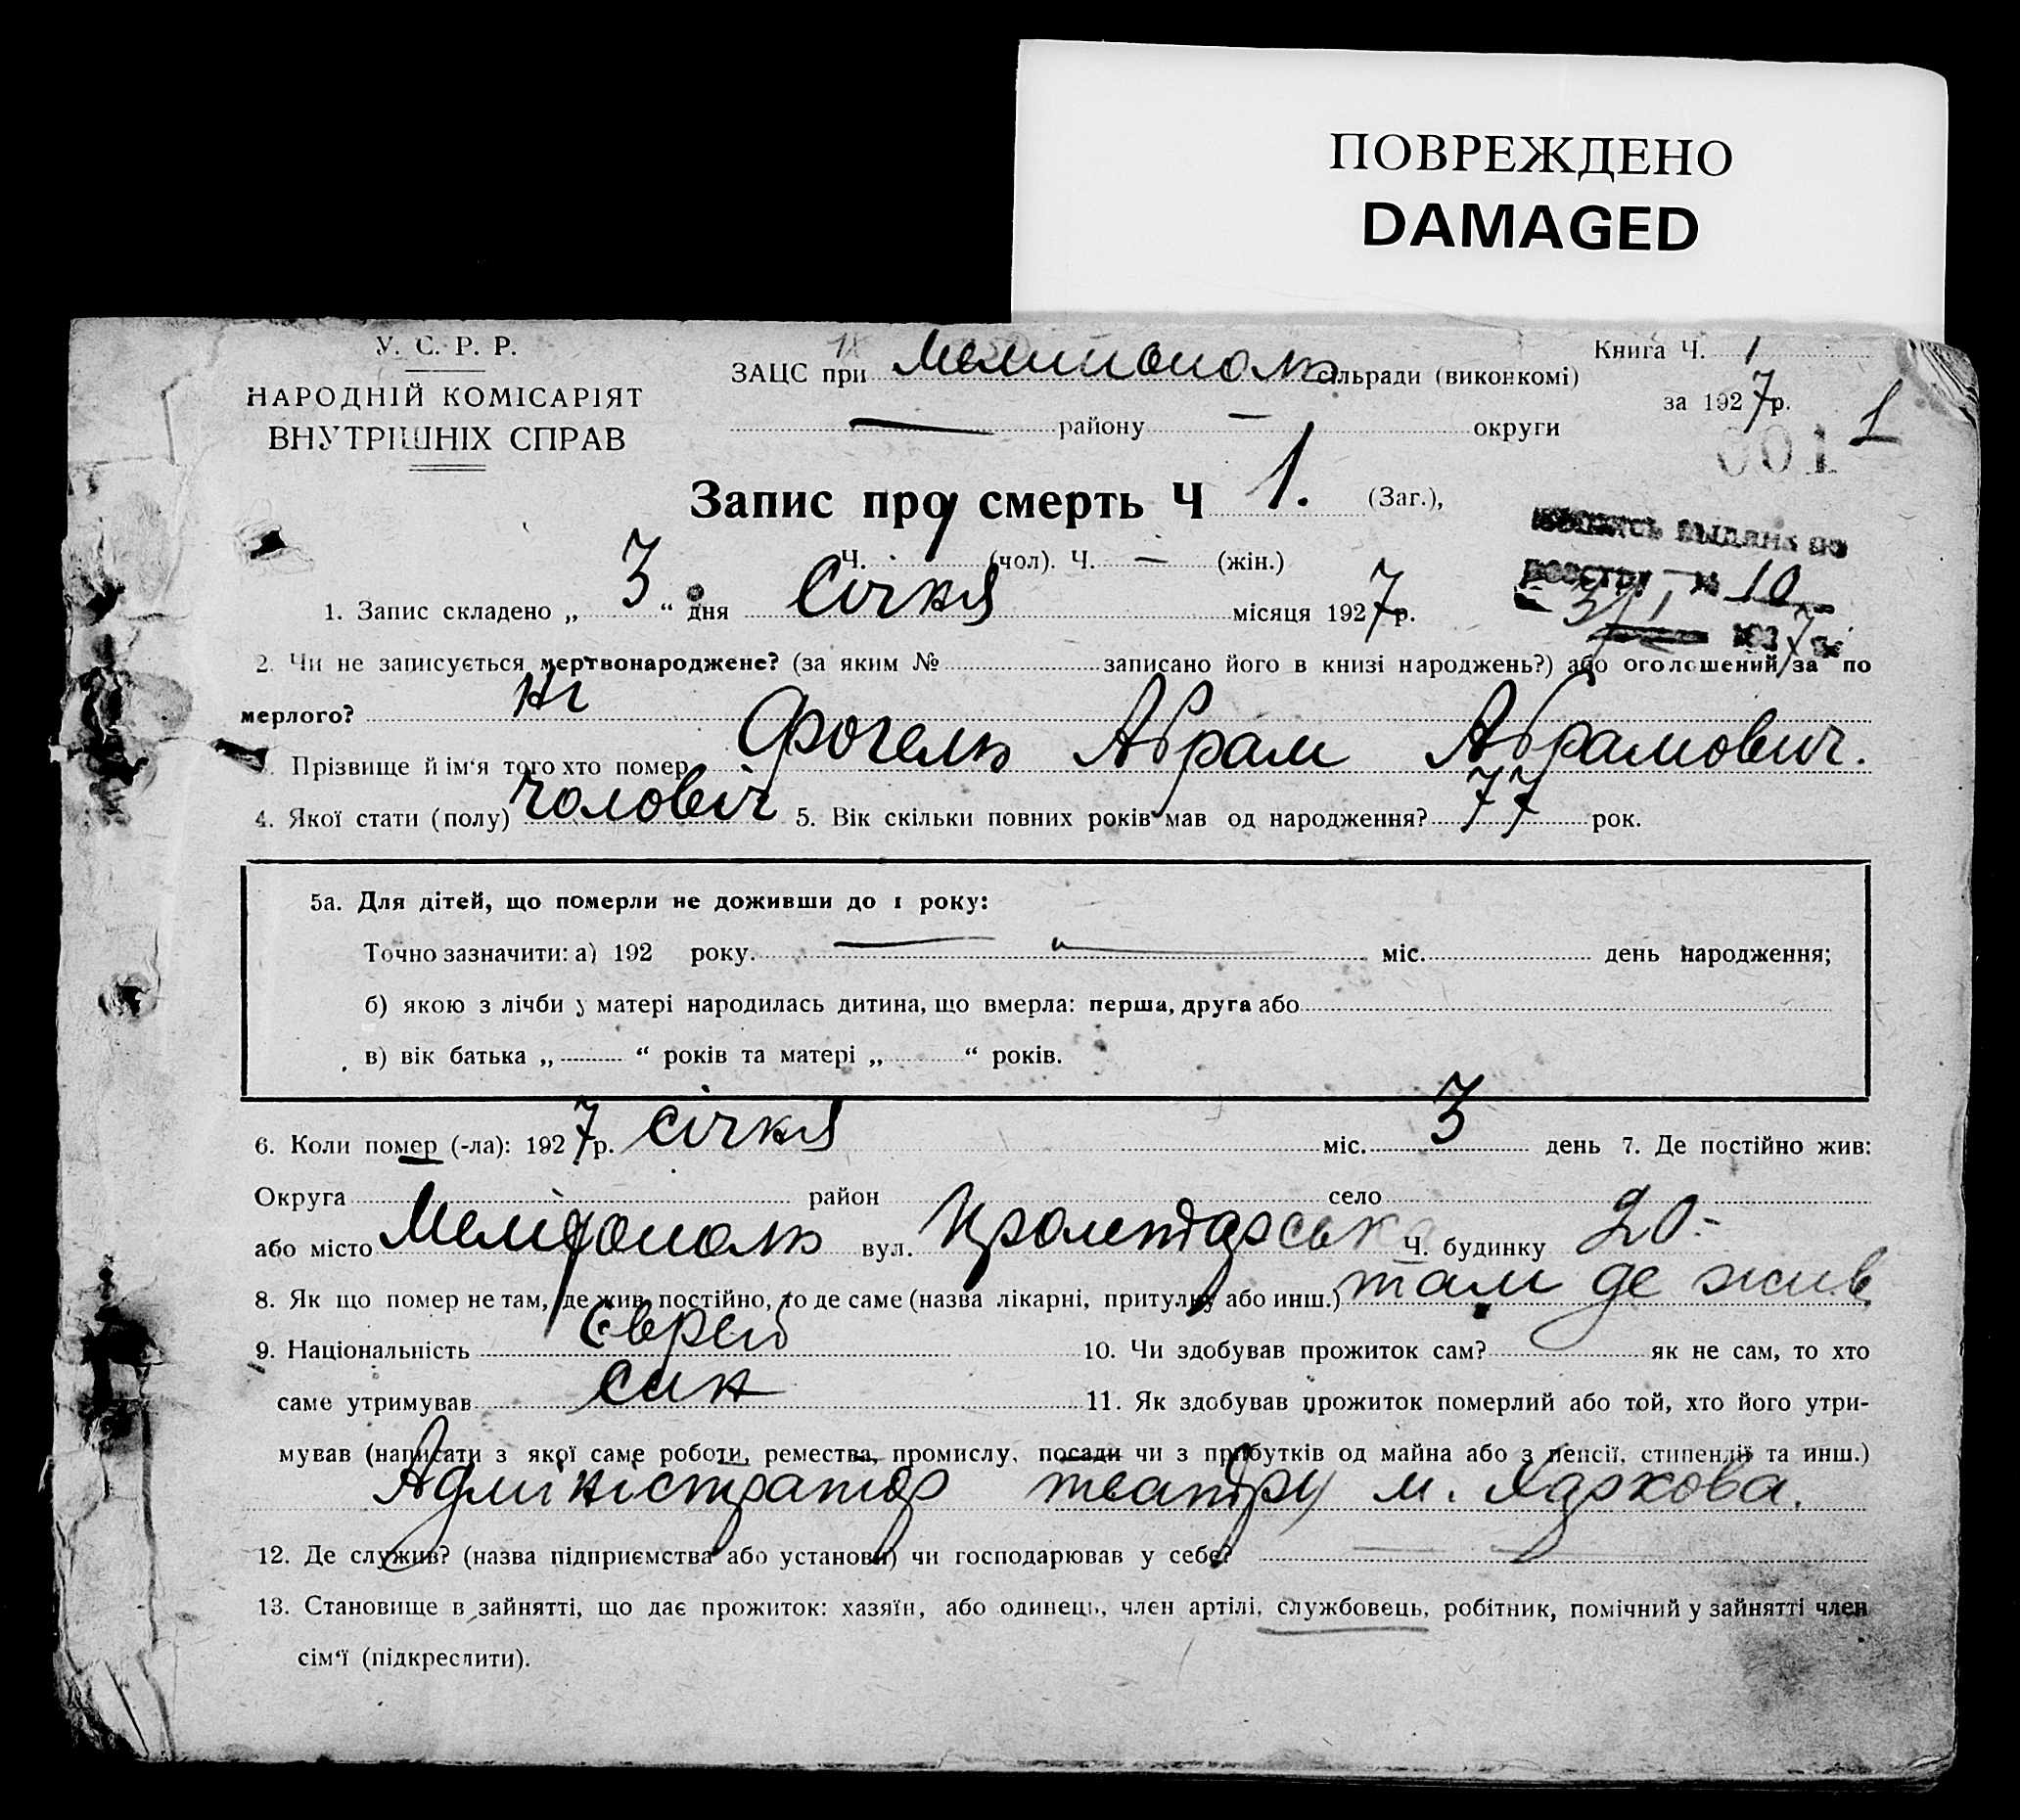 ПОВРЕЖДЕНО
DAMAGED
У. С. Р. Р.
НАРОДНІЙ КОМІСАРІЯТ
ВНУТРІШНІХ СПРАВ
ЗАЦС при Мелитополь сільради (виконкомі)
— району — округи
Книга Ч. 1
за 1927 р.
1
001
Запис про смерть Ч 1. (Заг.),
Ч. 1 (чол). Ч. — (жін.)
выдана по
реестру № 10
1. Запис складено „ 3 “ дня Січня місяця 1927 р.
2. Чи не записується мертвонароджене? (за яким № записано його в книзі народжень?) або оголошений за по
мерлого? Ні
Прізвище й ім‘я того хто помер Фогель Абрам Абрамович.
4. Якої стати (полу) чоловіч 5. Вік скільки повних років мав од народження? 77 рок.
5а. Для дітей, що померли не доживши до 1 року:
Точно зазначити: а) 192 року. — міс. день народження;
б) якою з лічби у матері народилась дитина, що вмерла: перша, друга або
в) вік батька „ “ років та матері „ “ років.
6. Коли помер (-ла): 1927 р. січня міс. 3 день 7. Де постійно жив:
Округа район село
або місто Мелітополь вул. Пролетарська Ч. будинку 20.
8. Як що помер не там, де жив постійно, то де саме (назва лікарні, притулку або инш.) там де жив
9. Національність Єврей 10. Чи здобував прожиток сам? як не сам, то хто
саме утримував син 11. Як здобував прожиток померлий або той, хто його утри-
мував (написати з якої саме роботи, ремества, промислу, посади чи з прибутків од майна або з пенсії, стипендії та инш.)
Адміністратор театру м. Харкова.
12. Де служив? (назва підприємства або установи) чи господарював у себе?
13. Становище в зайнятті, що дає прожиток: хазяїн, або одинець, член артілі, службовець, робітник, помічний у зайнятті член
сім‘ї (підкреслити).